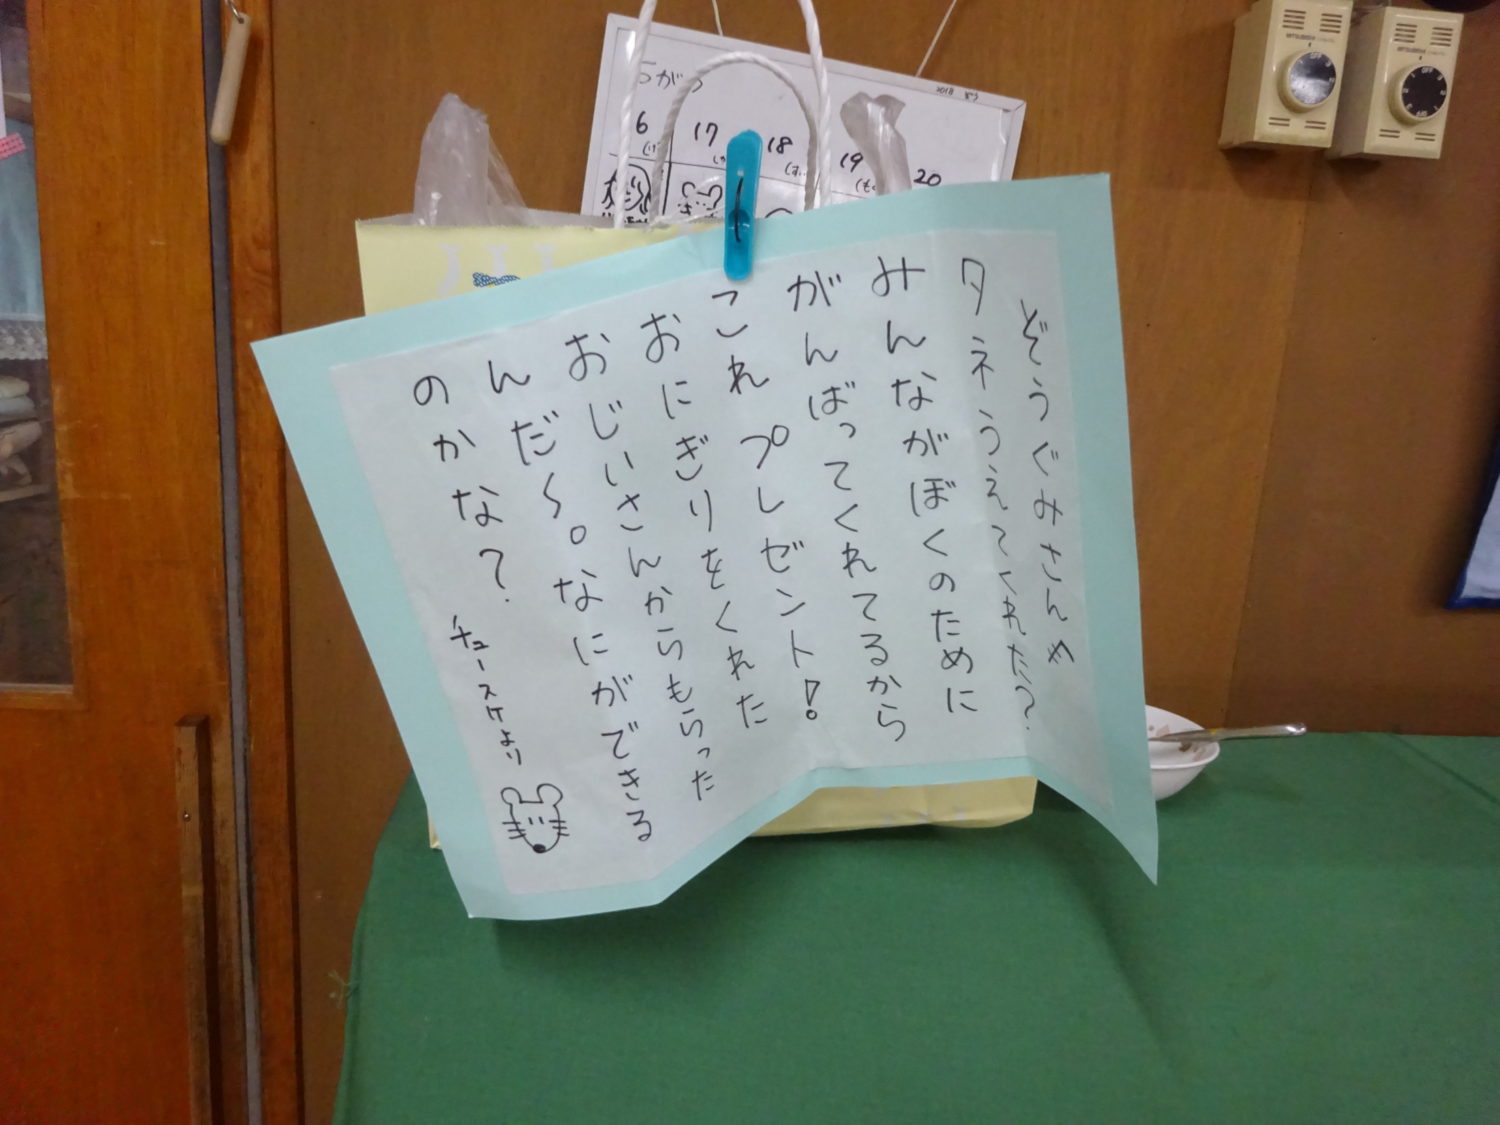 ぞうぐみさんめ
タネうえてくれた？
みんながぼくのために
がんばってくれてるから
これ プレゼント！
おにぎりをくれた
おじいさんからもらった
んだ〜。なにができる
のかな？
チュースケより
5がつ
6
17
18
19
20
2018
OFF
OFF